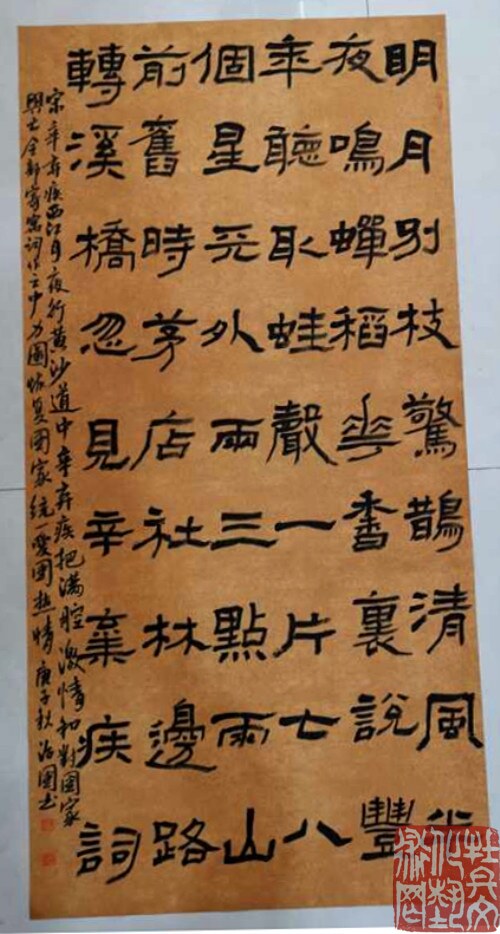 明月别枝驚鵲清風半
夜鳴蟬稻花香裏說豐
年聽取蛙聲一片七八
個星天外兩三點雨山
前舊時茅店社林邊路
轉溪橋忽見辛棄疾詞
宋辛弃疾西江月夜行黄沙道中辛弃疾把满腔激情和對國家
興亡全部寄寓詞作之中力圖恢复国家統一愛國热情庚子秋治國书